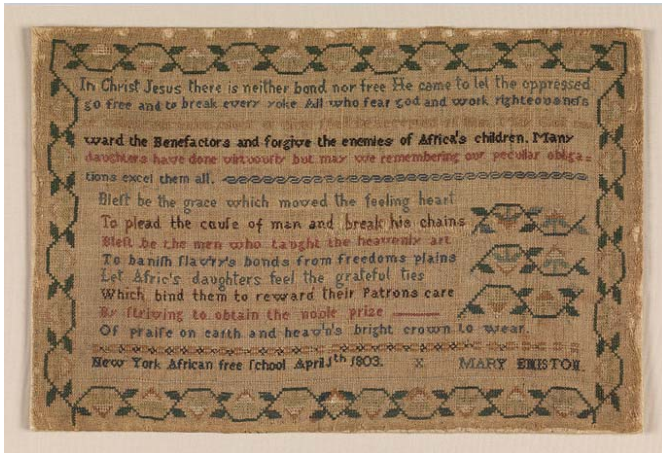 In Christ Jesus there is neither bond nor free He came to let the oppressed
go free and to break every yoke All who fear god and work righteousneſs
ward the Benefactors and forgive the enemies of Africa's children. Many
daughters have done virtuouſly but may we remembering our peculiar obliga=
tions excel them all.
Bleſt be the grace which moved the feeling heart
To plead the cauſe of man and break his chains
Bleſt be the men who taught the heavenly art
To baniſh ſlav'ry's bonds from freedoms plains
Let Afric's daughters feel the grateful ties
Which bind them to reward their Patrons care
By ſtriving to obtain the noble prize
Of praiſe on earth and heav'n's bright crown to wear
New York African free ſchool April 5th 1803. X MARY EMISTON.